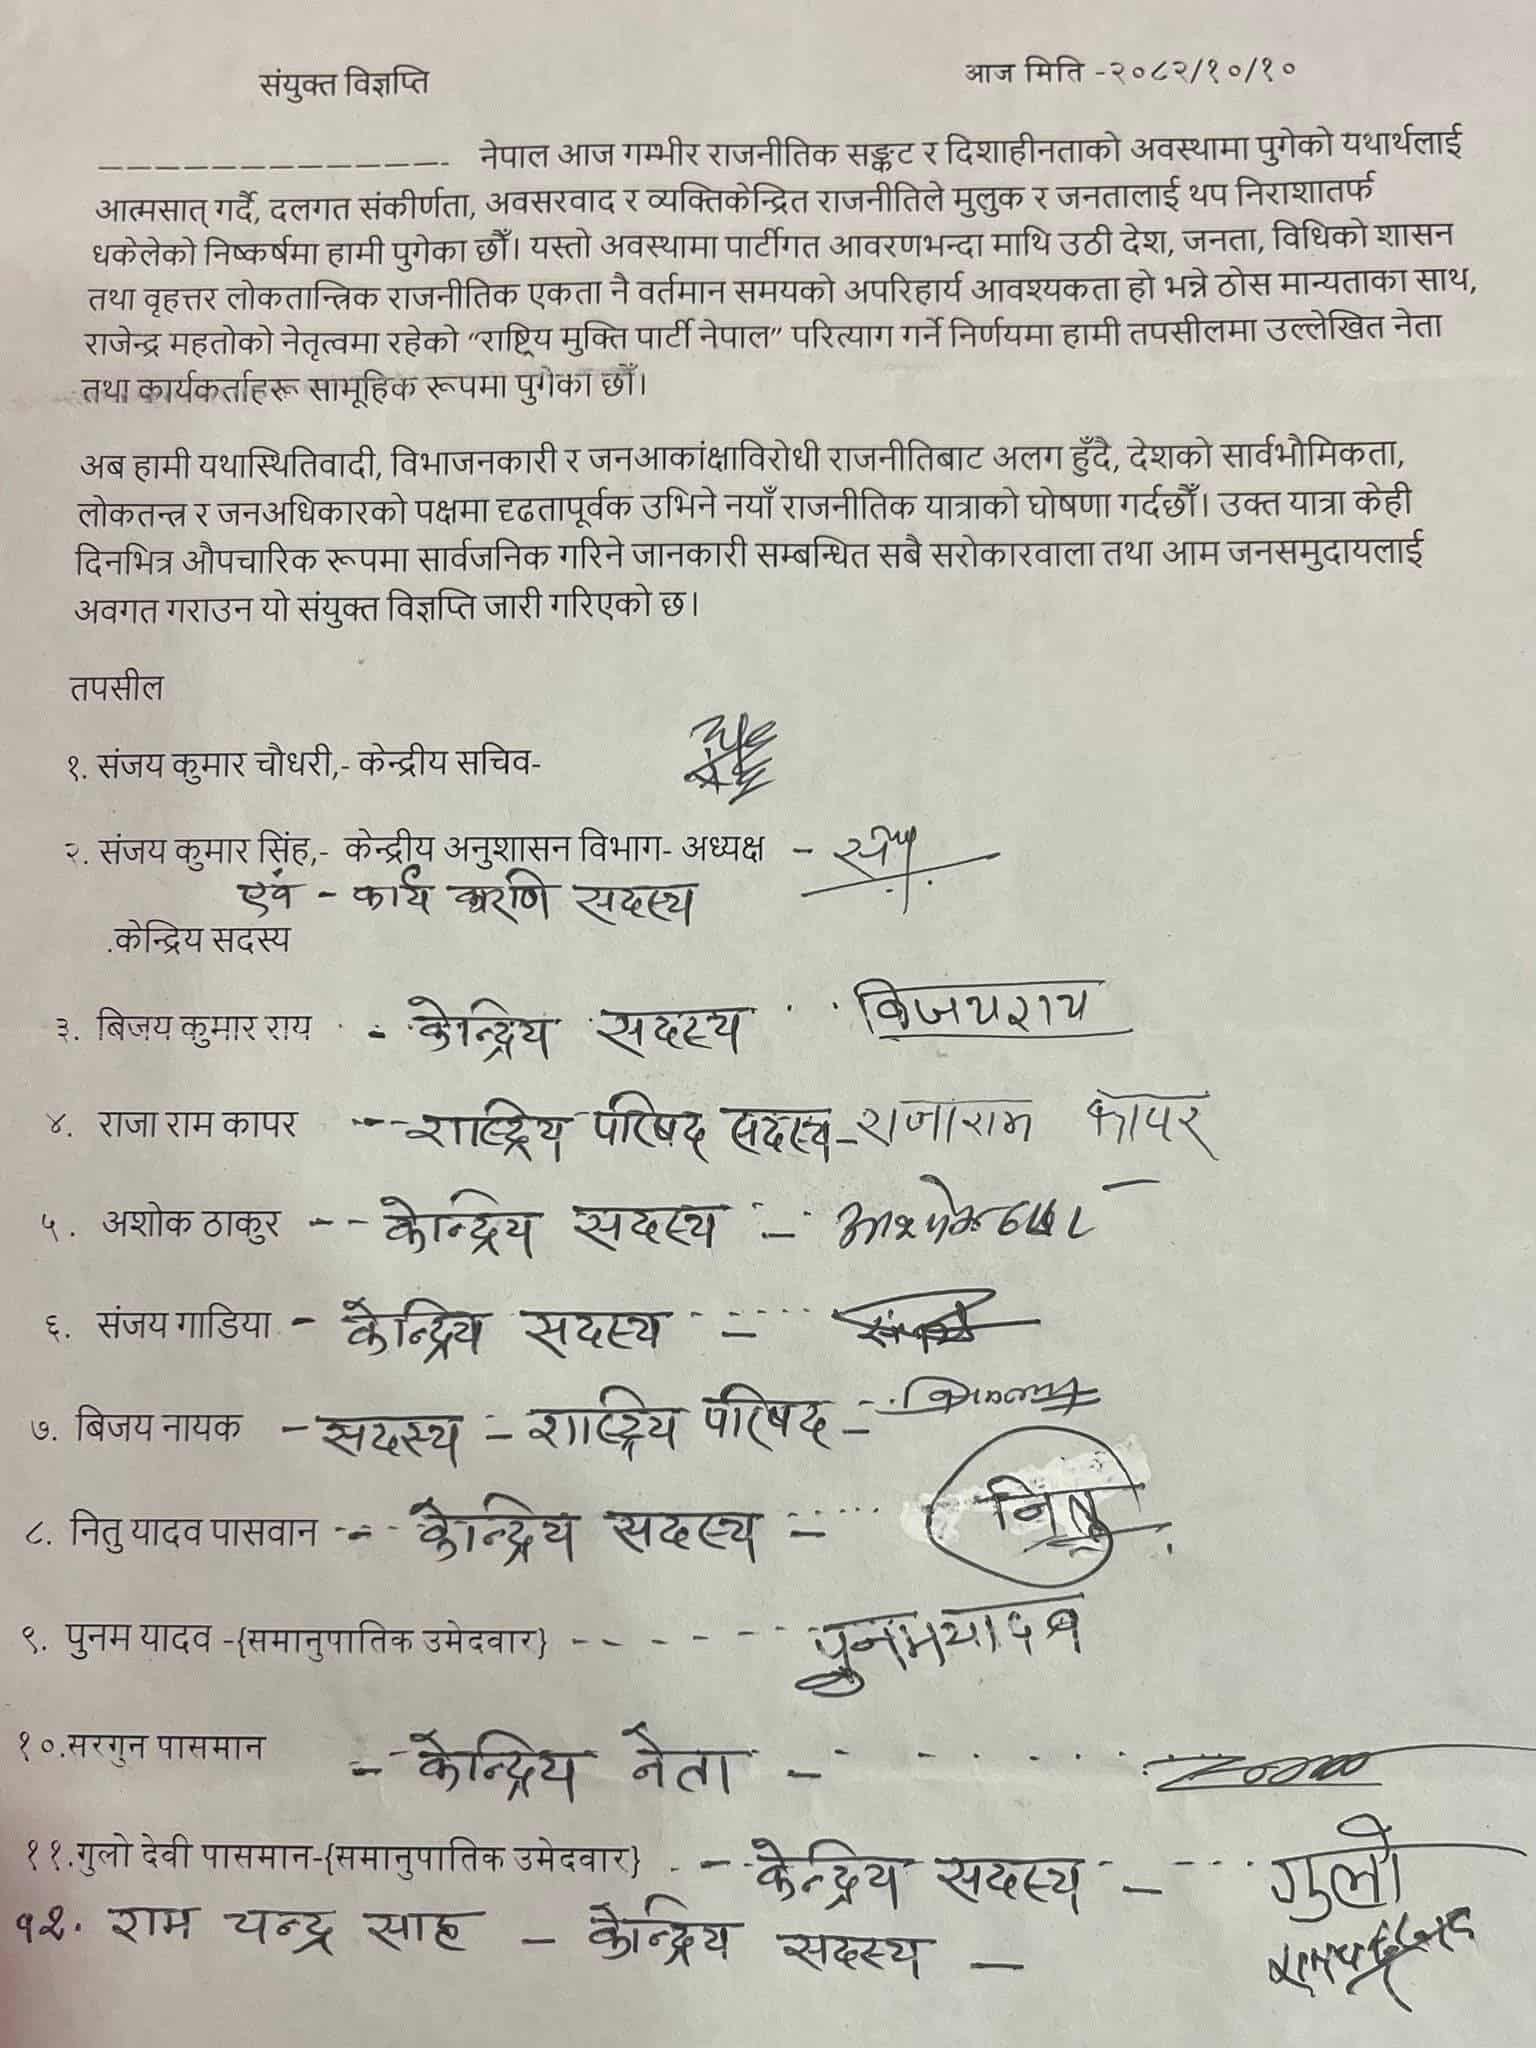 संयुक्त विज्ञप्ति
आज मिति -२०८२/१०/१०
____________. नेपाल आज गम्भीर राजनीतिक सङ्कट र दिशाहीनताको अवस्थामा पुगेको यथार्थलाई
आत्मसात् गर्दै, दलगत संकीर्णता, अवसरवाद र व्यक्तिकेन्द्रित राजनीतिले मुलुक र जनतालाई थप निराशातर्फ
धकेलेको निष्कर्षमा हामी पुगेका छौँ। यस्तो अवस्थामा पार्टीगत आवरणभन्दा माथि उठी देश, जनता, विधिको शासन
तथा वृहत्तर लोकतान्त्रिक राजनीतिक एकता नै वर्तमान समयको अपरिहार्य आवश्यकता हो भन्ने ठोस मान्यताका साथ,
राजेन्द्र महतोको नेतृत्वमा रहेको “राष्ट्रिय मुक्ति पार्टी नेपाल” परित्याग गर्ने निर्णयमा हामी तपसीलमा उल्लेखित नेता
तथा कार्यकर्ताहरू सामूहिक रूपमा पुगेका छौँ।
अब हामी यथास्थितिवादी, विभाजनकारी र जनआकांक्षाविरोधी राजनीतिबाट अलग हुँदै, देशको सार्वभौमिकता,
लोकतन्त्र र जनअधिकारको पक्षमा दृढतापूर्वक उभिने नयाँ राजनीतिक यात्राको घोषणा गर्दछौँ। उक्त यात्रा केही
दिनभित्र औपचारिक रूपमा सार्वजनिक गरिने जानकारी सम्बन्धित सबै सरोकारवाला तथा आम जनसमुदायलाई
अवगत गराउन यो संयुक्त विज्ञप्ति जारी गरिएको छ।
तपसील
१. संजय कुमार चौधरी,- केन्द्रीय सचिव-
२. संजय कुमार सिंह,- केन्द्रीय अनुशासन विभाग- अध्यक्ष -
एवं - कार्य करणि सदस्य
.केन्द्रिय सदस्य
३. बिजय कुमार राय - केन्द्रिय सदस्य विजय राय
४. राजा राम कापर --- राष्ट्रिय परिषद सदस्य - राजाराम कापर
५. अशोक ठाकुर -- केन्द्रिय सदस्य -
६. संजय गाडिया - केन्द्रिय सदस्य -
७. बिजय नायक - सदस्य - राष्ट्रिय परिषद -
८. नितु यादव पासवान -- केन्द्रिय सदस्य - नितु
९. पुनम यादव -{समानुपातिक उमेदवार} - - - - पुनम यादव
१०.सरगुन पासमान -- केन्द्रिय नेता -
११.गुलो देवी पासमान-{समानुपातिक उमेदवार} -- केन्द्रिय सदस्य - गुलो
१२. राम चन्द्र साह - केन्द्रिय सदस्य -